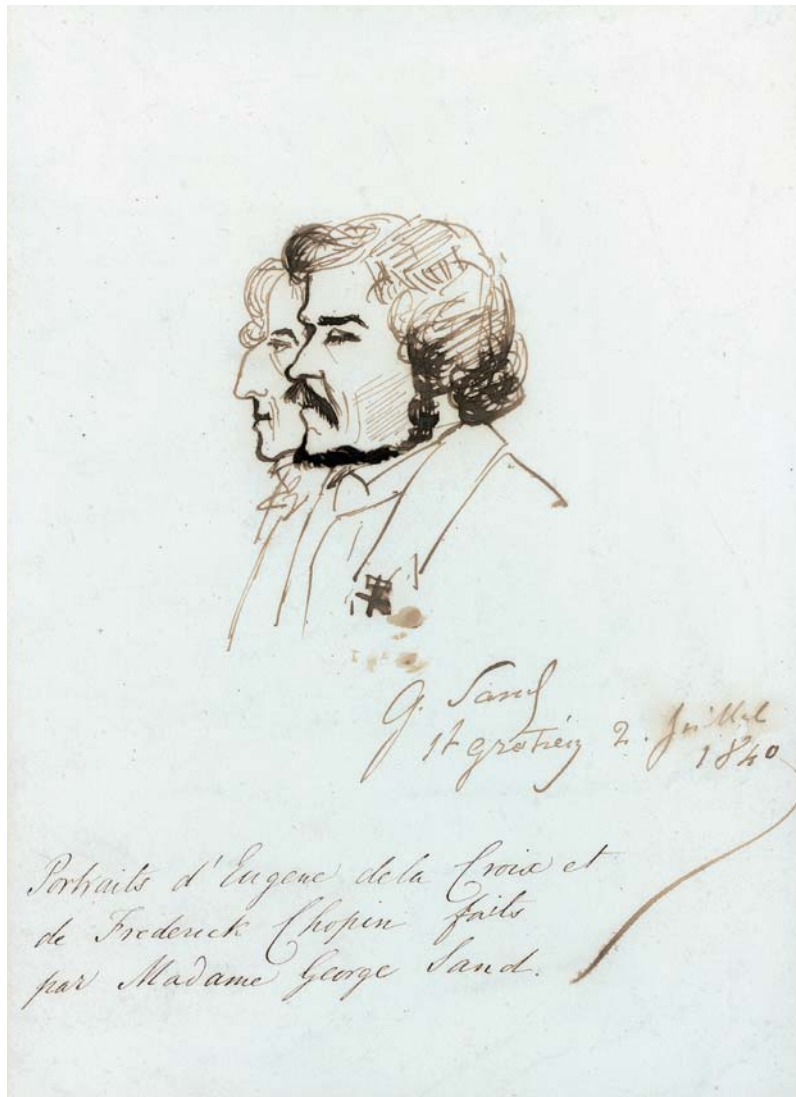 G. Sand
St Gratien 2. Juillet
1840
Portraits d'Eugene de la Croix et
de Frederick Chopin faits
par Madame George Sand.